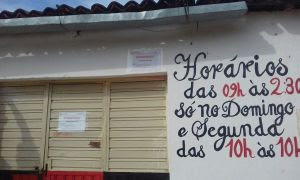 Horários
das 09h às 2:30
só no Domingo
e Segunda
das 10h às 10h